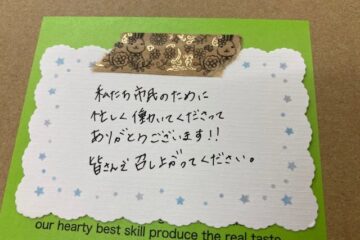 私たち市民のために
忙しく働いてくださって
ありがとうございます!!
皆さんで召し上がってください。
our hearty best skill produce the real taste